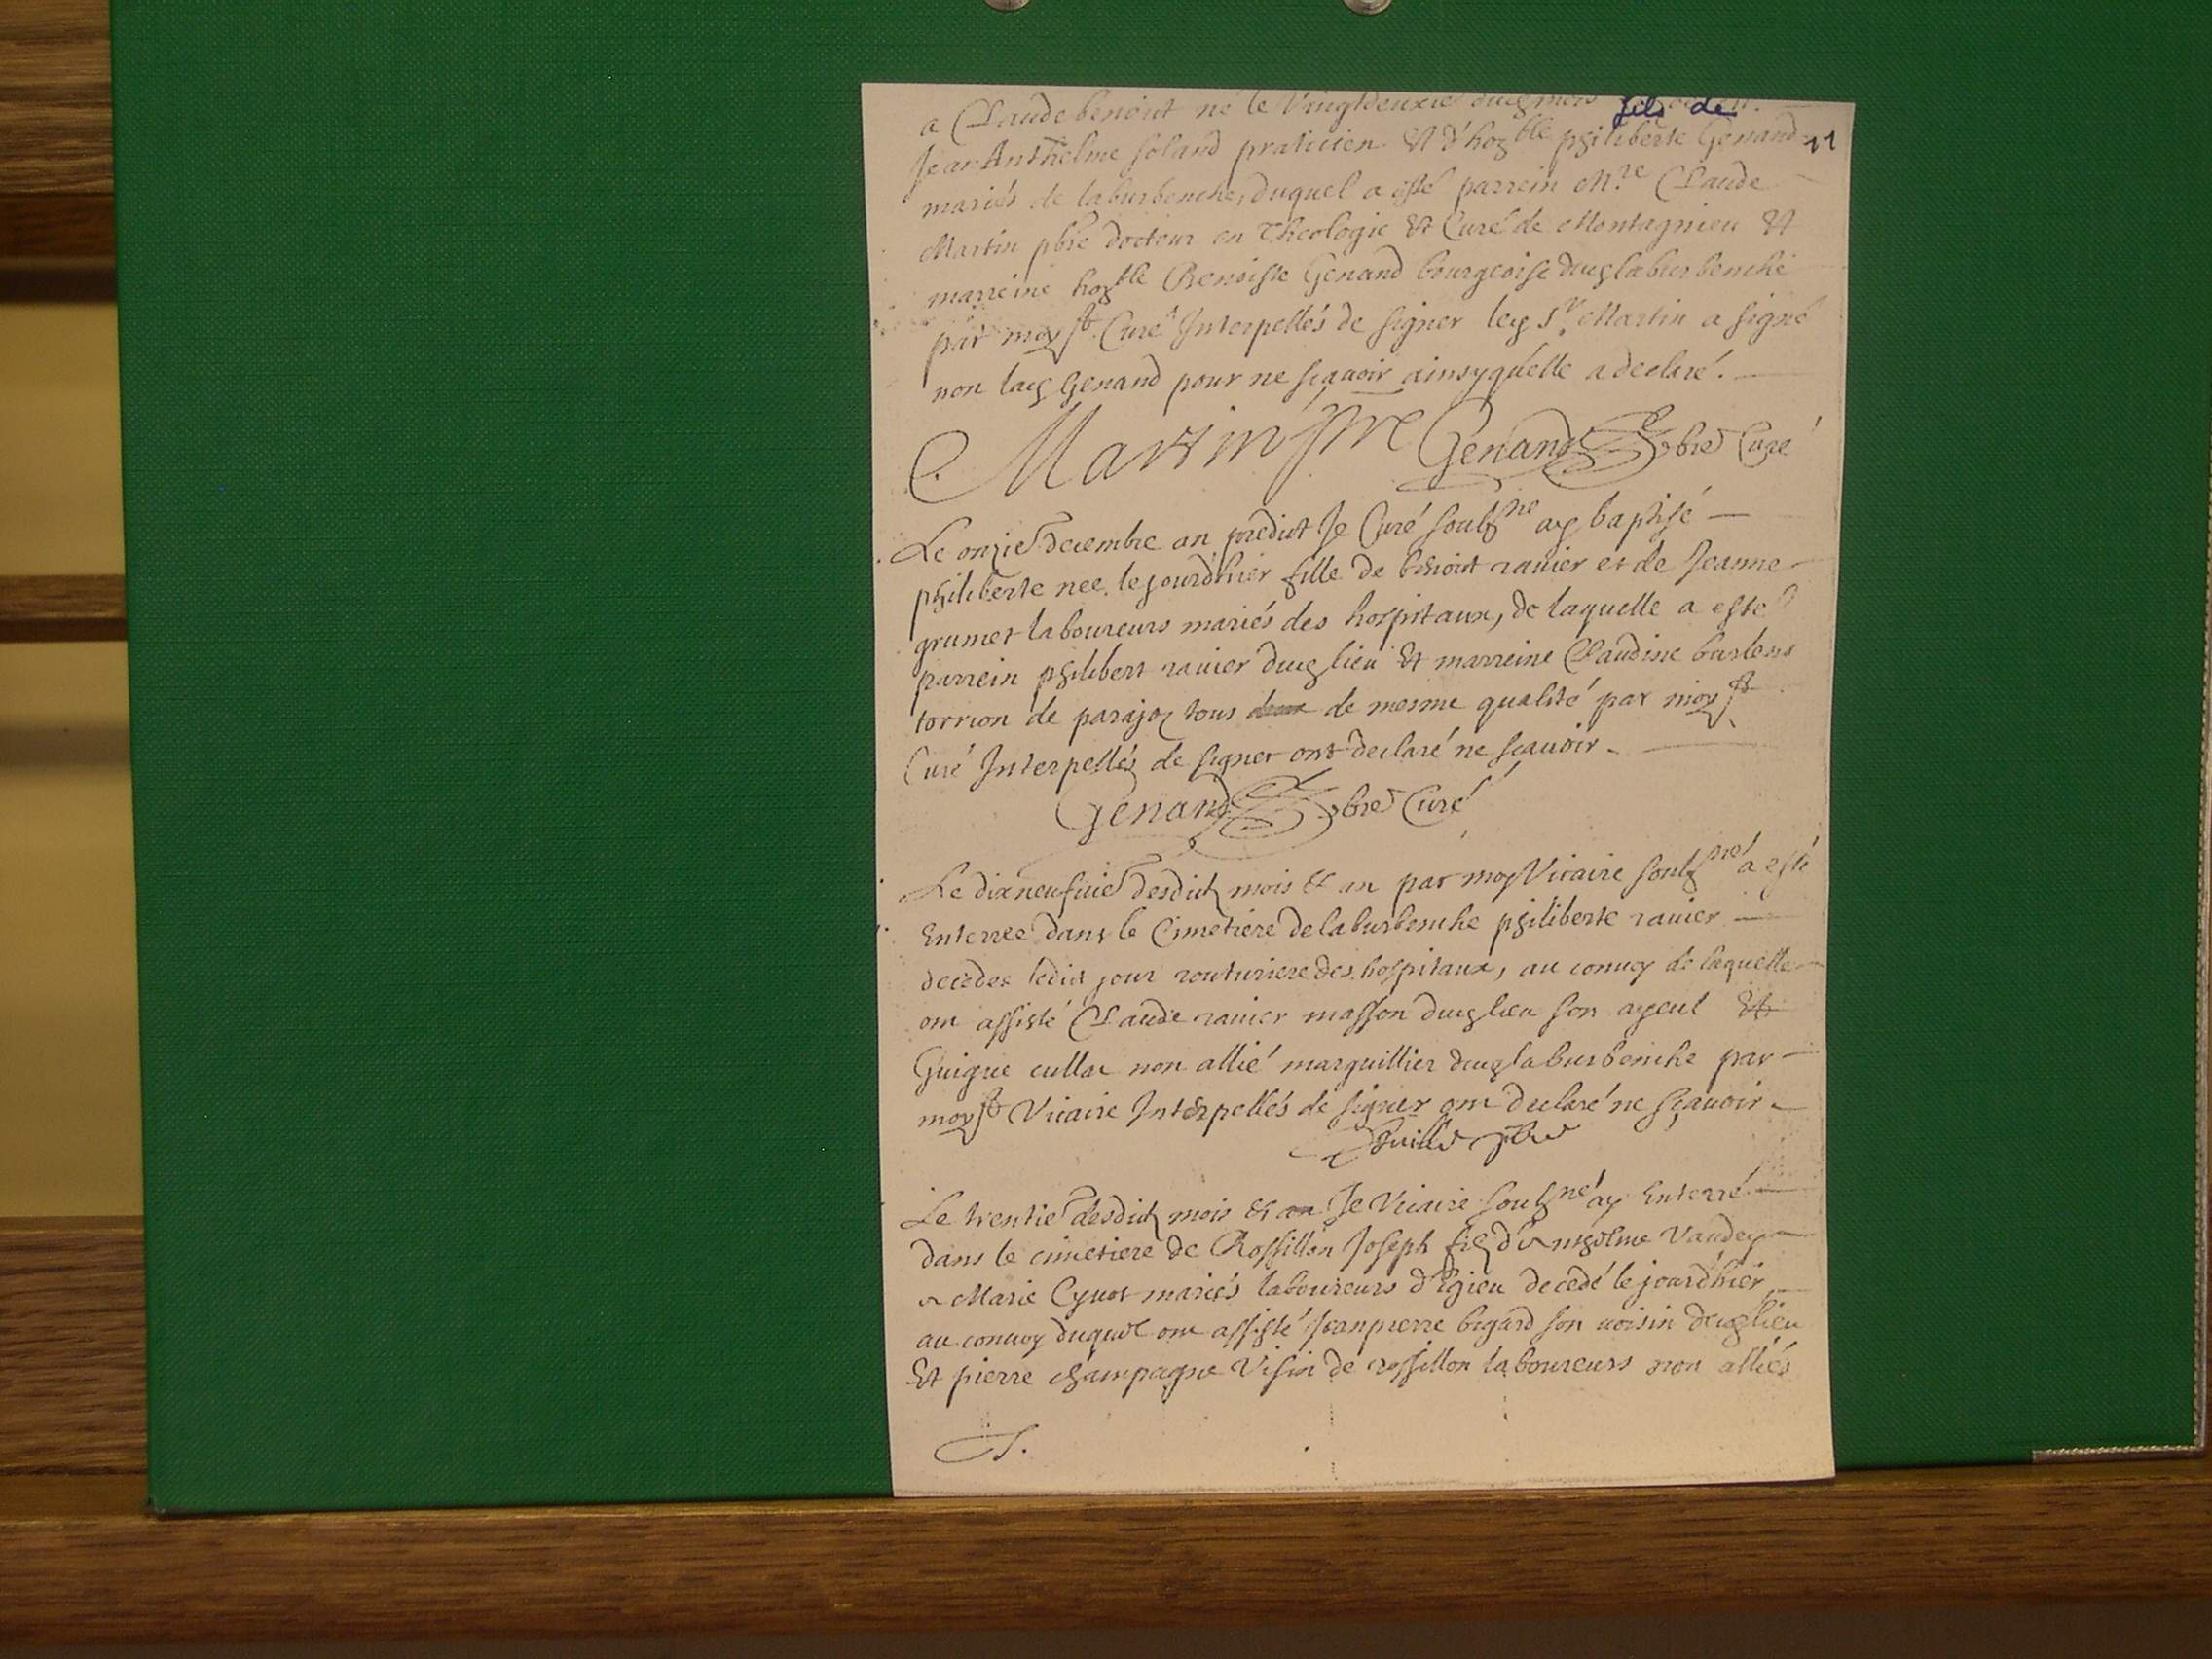 a Claude benoict né le Vingtdeuxie ducq mois fils de
Jean Anthelme Soland praticien Et d'honble philiberte Genand 11
mariés de laburbenche, duquel a esté parrein Mre Claude
Martin pbre docteur en Theologie Et Curé de Montagnieu Et
marreine honble Benoiste Genand bourgeoise ducq laburbenche
par moy st Curé Interpellés de signer lecq Sr Martin a signé
non lacq Genand pour ne sçauoir ainsy quelle a declaré.
Martin pbre Genand pbre Curé
Le onzie decembre an predict Je Curé soubsné ay baptisé
philiberte nee le jourdhier fille de benoict rauier et de Jeanne
grumet laboureurs mariés des hospitaux, de laquelle a esté
parrein philibert rauier ducq lieu Et marreine Claudine
torrion de parajoz tous de mesme qualité par moy st
Curé Interpellés de signer ont declaré ne scauoir.
Genand pbre Curé
Le dixneufuie desdictz mois Et an par moy Vicaire soubsné a esté
Enterrée dans le Cimetiere de laburbenche philiberte rauier
decedee ledict jour routuriere des hospitaux, au conuoy de laquelle
ont assisté Claude rauier masson ducq lieu son ayeul Et
Guigue cullac non allié marguillier ducq laburbenche par
moy st Vicaire Interpellés de signer ont declaré ne sçauoir.
pbre
Le trentie desdictz mois Et an Je Vicaire soubsné ay Enterré
dans le cimetiere de Rossillon Joseph fils d'Anthelme Vandey
& Marie Cynot mariés laboureurs d'Egieu decedé le jourdhier
au conuoy duquel ont assisté Jeanpierre bigard son uoisin ducq lieu
Et pierre champagne Visin de rossillon laboureurs non alliés